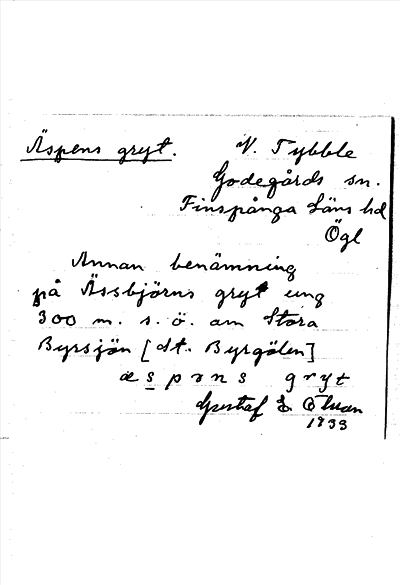 Äspens gryt. V. Tybble
Godegårds sn.
Finspånga läns hd
Ögl
Annan benämning
på Ässbjörns gryt ung
300 m. s. ö. om Stora
Byrsjön [St. Byrgölen]
æspəns gryt
Gustaf E
1933